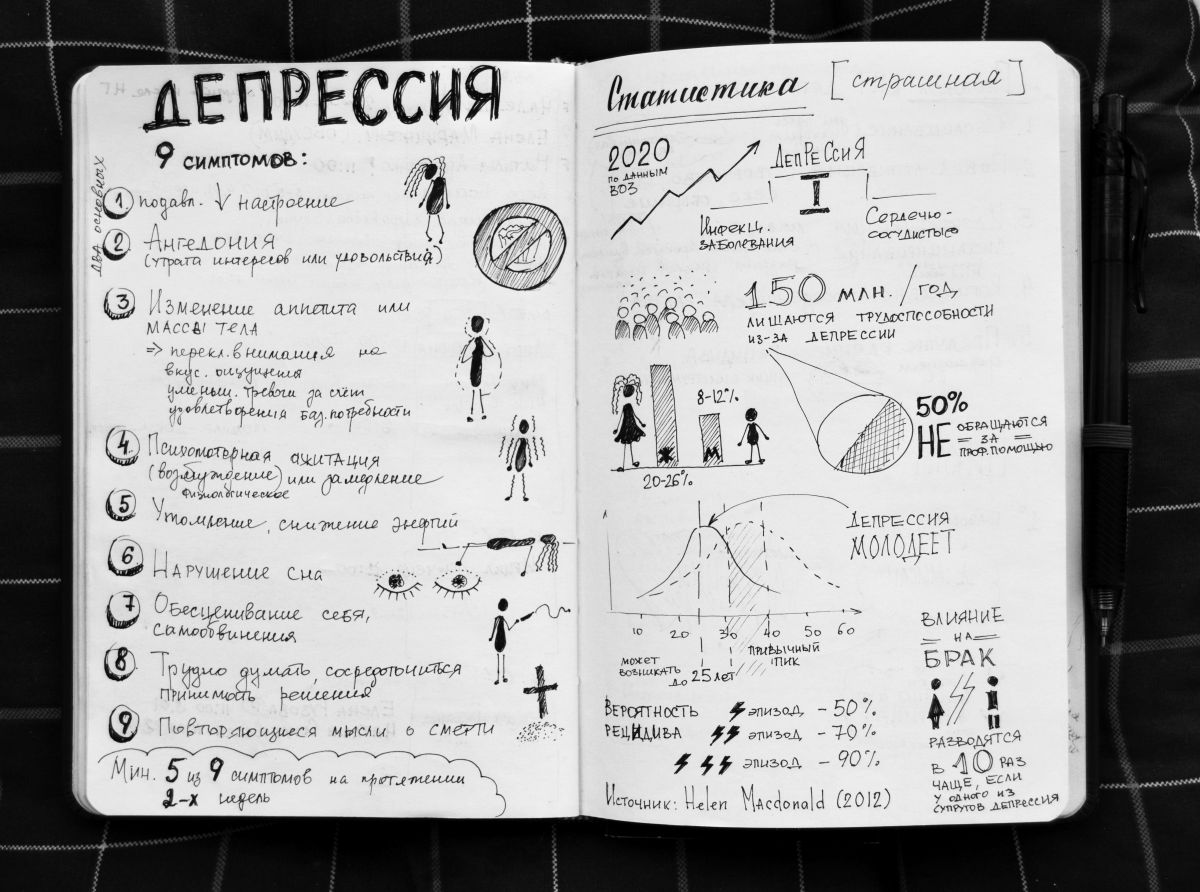 ДЕПРЕССИЯ
9 симптомов:
два основных
1 подавл. ↓ настроение
2 Ангедония
(утрата интересов или удовольствия)
3 Изменение аппетита или
массы тела
=> перекл. внимания на
вкус. ощущения
уменьш. тревоги за счёт
удовлетворения баз. потребности
4 Психомоторная ажитация
(возбуждение) или замедление
физиологическое
5 Утомление, снижение энергии
6 Нарушение сна
7 Обесценивание себя,
самообвинения
8 Трудно думать, сосредоточиться
принимать решения
9 Повторяющиеся мысли о смерти
Мин. 5 из 9 симптомов на протяжении
2-х недель
Статистика [страшная]
2020
по данным
ВОЗ
Депрессия
I
Инфекц.
заболевания
Сердечно-
сосудистые
150 млн. / год
лишаются трудоспособности
из-за депрессии
8-12%
Ж
М
20-26%
50%
НЕ обращаются
за
проф. помощью
Депрессия
молодеет
10 20 30 40 50 60
может
возникать
до 25 лет
привычный
пик
Влияние
на
брак
разводятся
в 10 раз
чаще, если
у одного из
супругов депрессия
Вероятность
рецидива
эпизод - 50%
эпизод - 70%
эпизод - 90%
Источник: Helen Macdonald (2012)